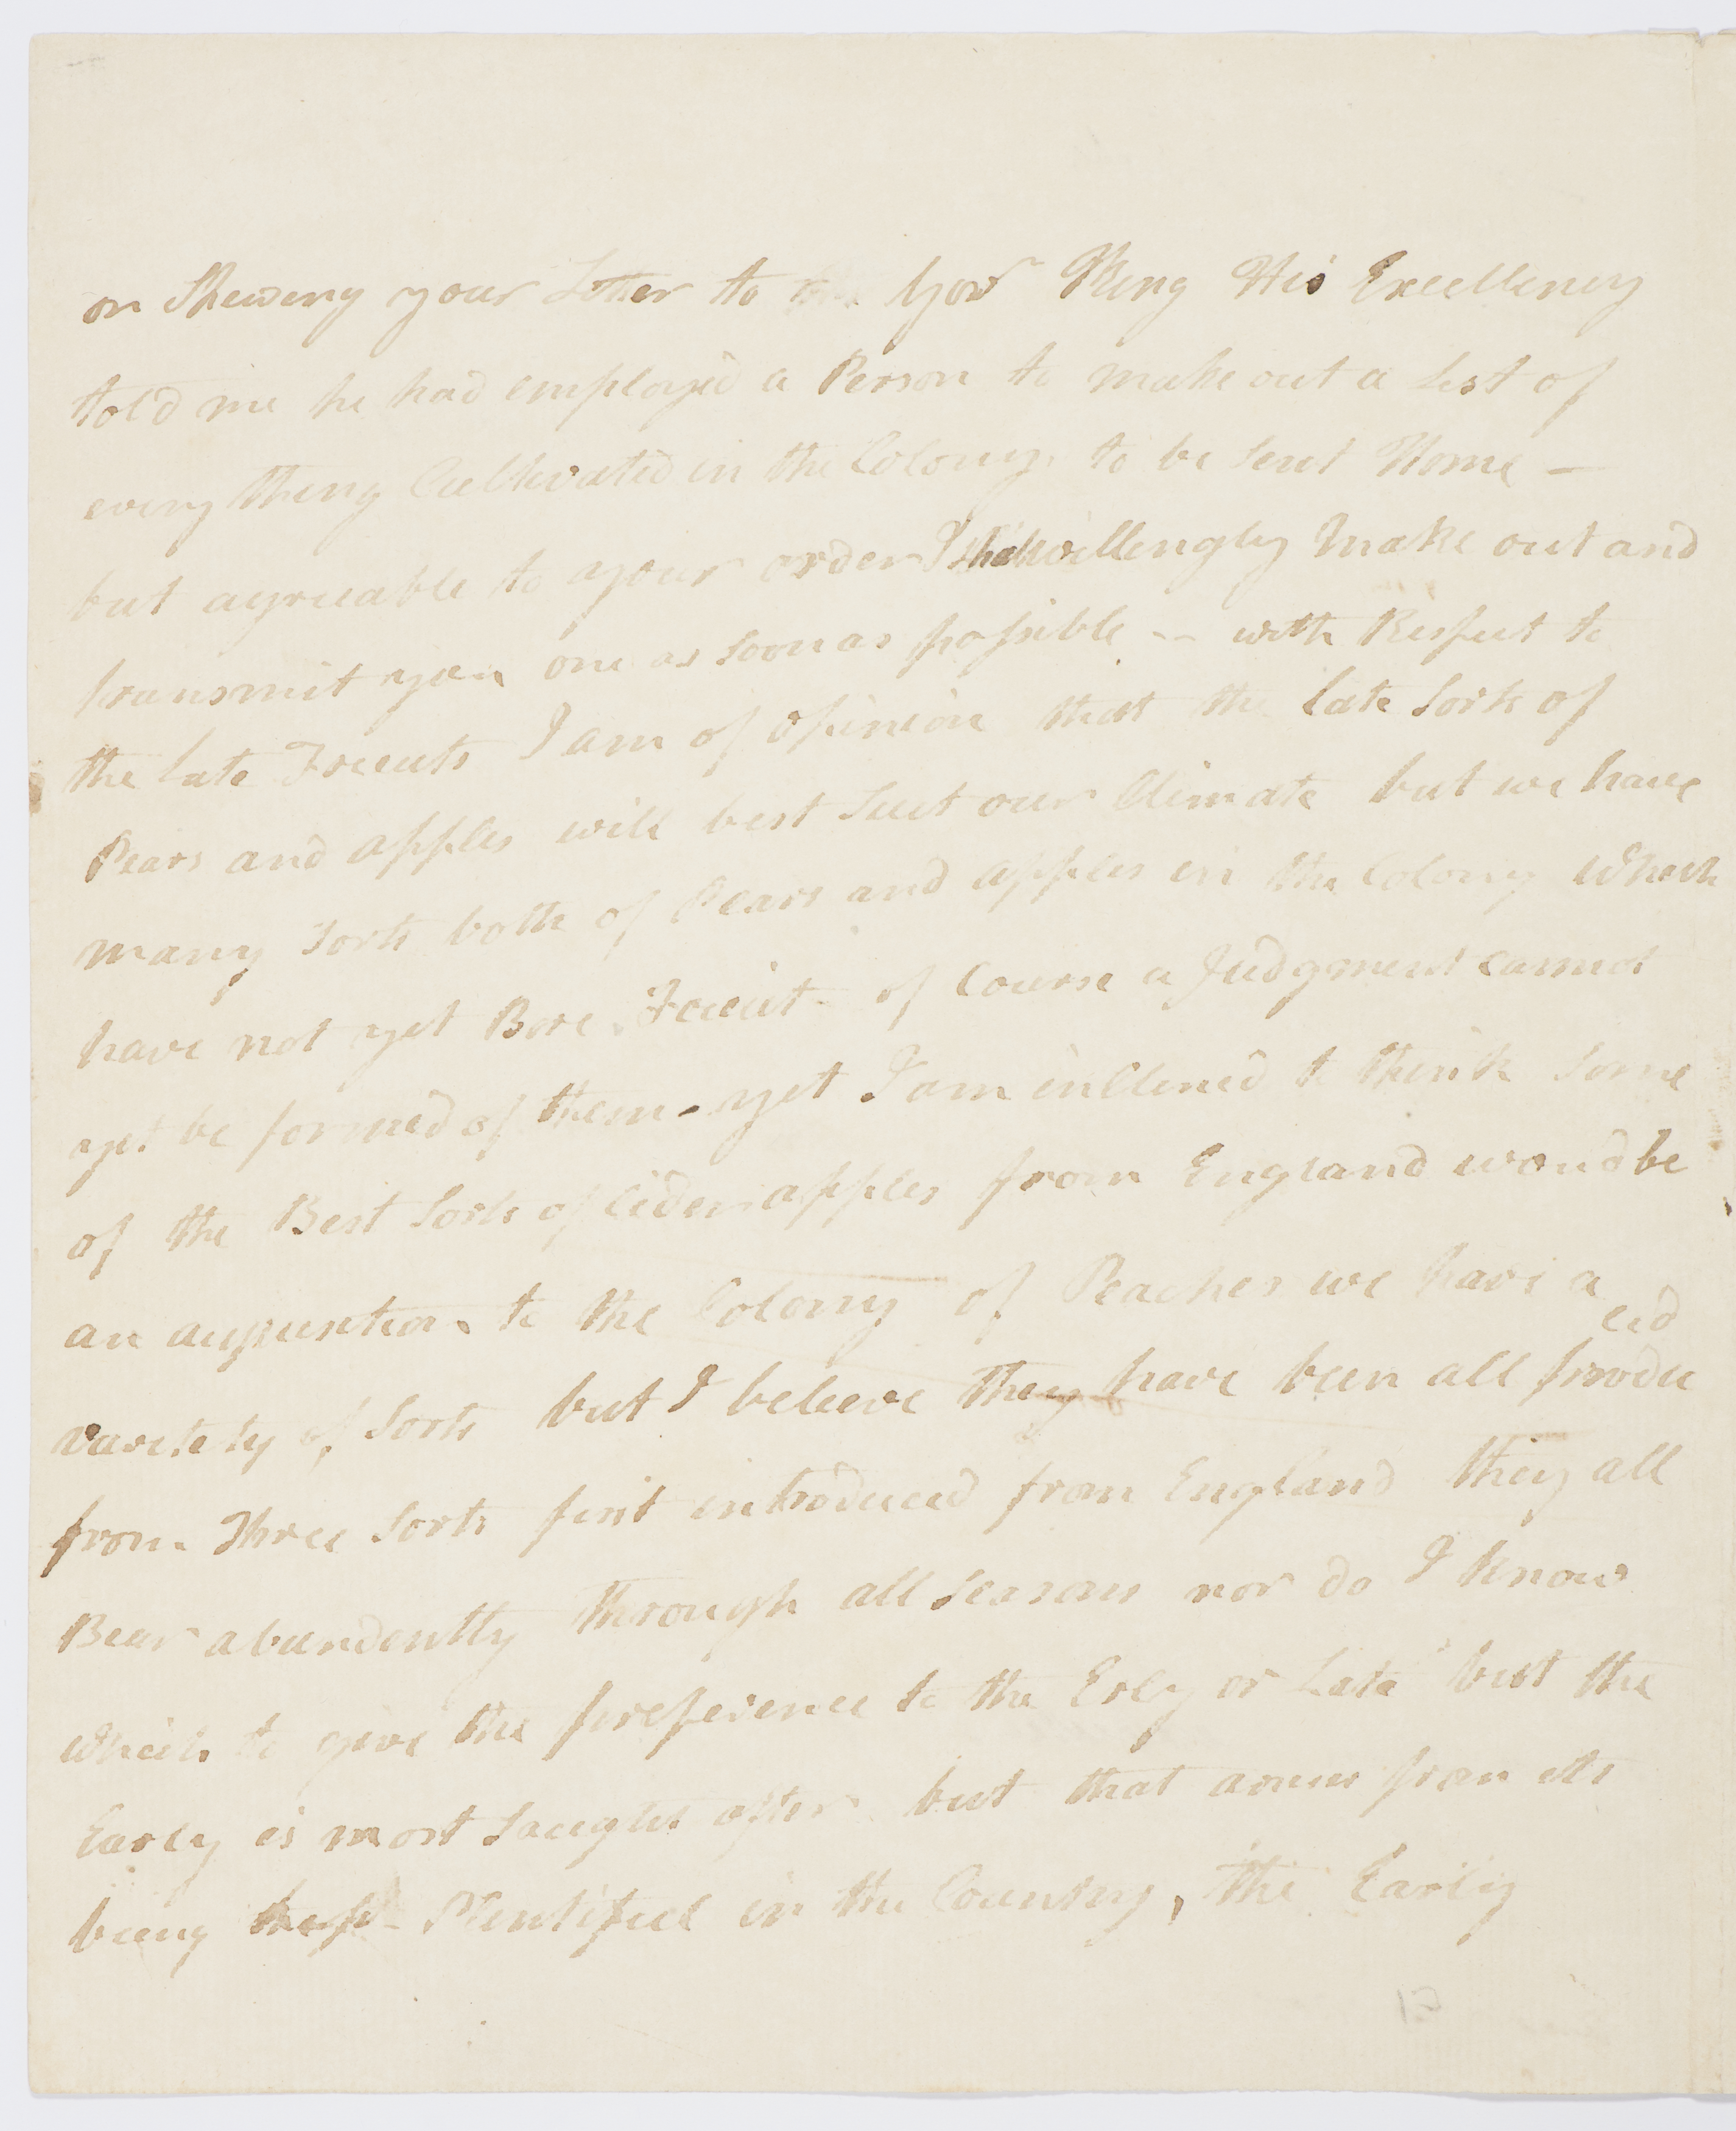 on Shewing your Letter to Govr King His Excellency
told me he had employed a Person to make out a List of
every thing Cultivated in the Colony to be Sent Home —
but agreeable to your order I shall willingly make out and
transmit you one as soon as possible — with Respect to
the late Fruits I am of opinion that the late Sorts of
Pears and apples will best Suit our Climate but we have
many Sorts both of Pears and apples in the Colony which
have not yet Bore Fruit of Course a Judgment cannot
yet be formed of them - yet I am inclined to think Some
of the Best Sorts of Cider apples from England woud be
an acquisition to the Colony of Peaches we have a
variety of Sorts but I beleeve they have been all produ ced
from Three Sorts first introduced from England they all
Bear abundently through all Seasons nor do I know
which to give the preference to the Erly or Late but the
Early is most Saught after but that arises from its
being less Plentiful in the Country, the Early